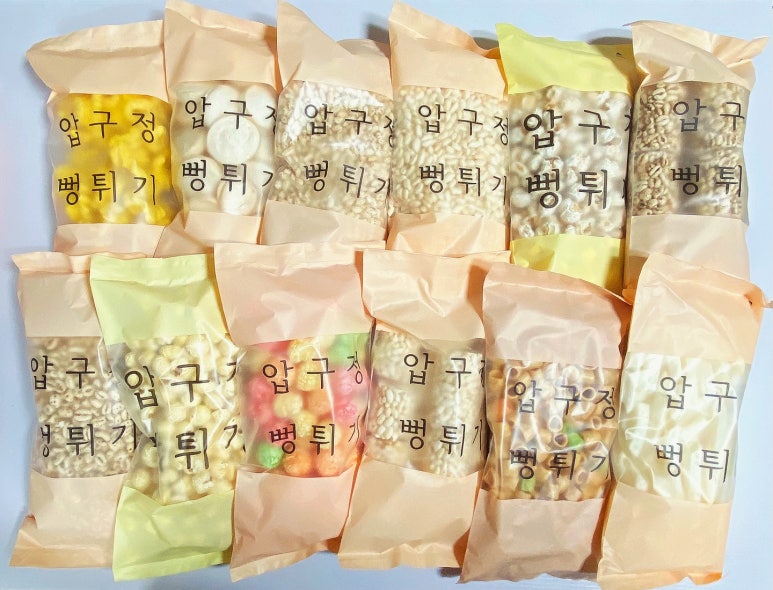 압구정
뻥튀기
압구정
뻥튀기
압구정
뻥튀기
압구정
뻥튀기
압구
뻥튀
압구
뻥튀
압구
뻥튀기
압구
튀기
압구정
뻥튀기
압구정
뻥튀기
압구정
뻥튀기
압구
뻥튀